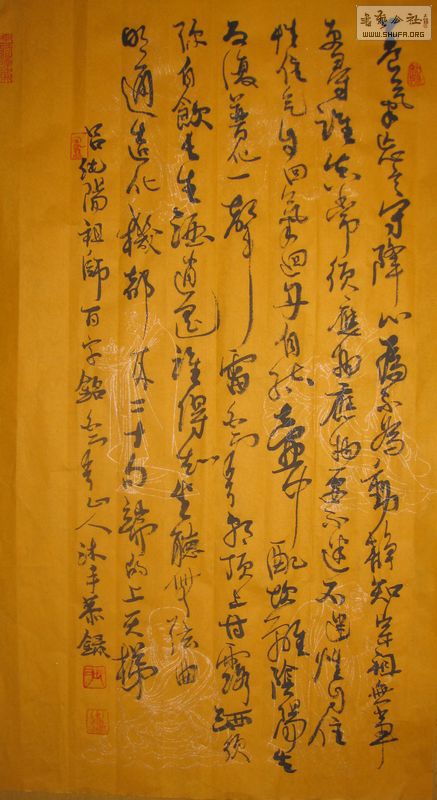 書藝公社
WWW.SHUFA.ORG
养氣忘言守降心爲不為動靜知宗祖無事
更尋誰真常須應物應物要不迷不迷性自住
性住氣自回氣迴丹自結壺中配坎離陰陽生
反復普化一聲雷白雲朝頂上甘露洒须
弥自飲長生酒逍遥誰得知坐聽無弦曲
明通造化機都來二十句端的上天梯
呂純陽祖師百字銘 山人沐手恭錄